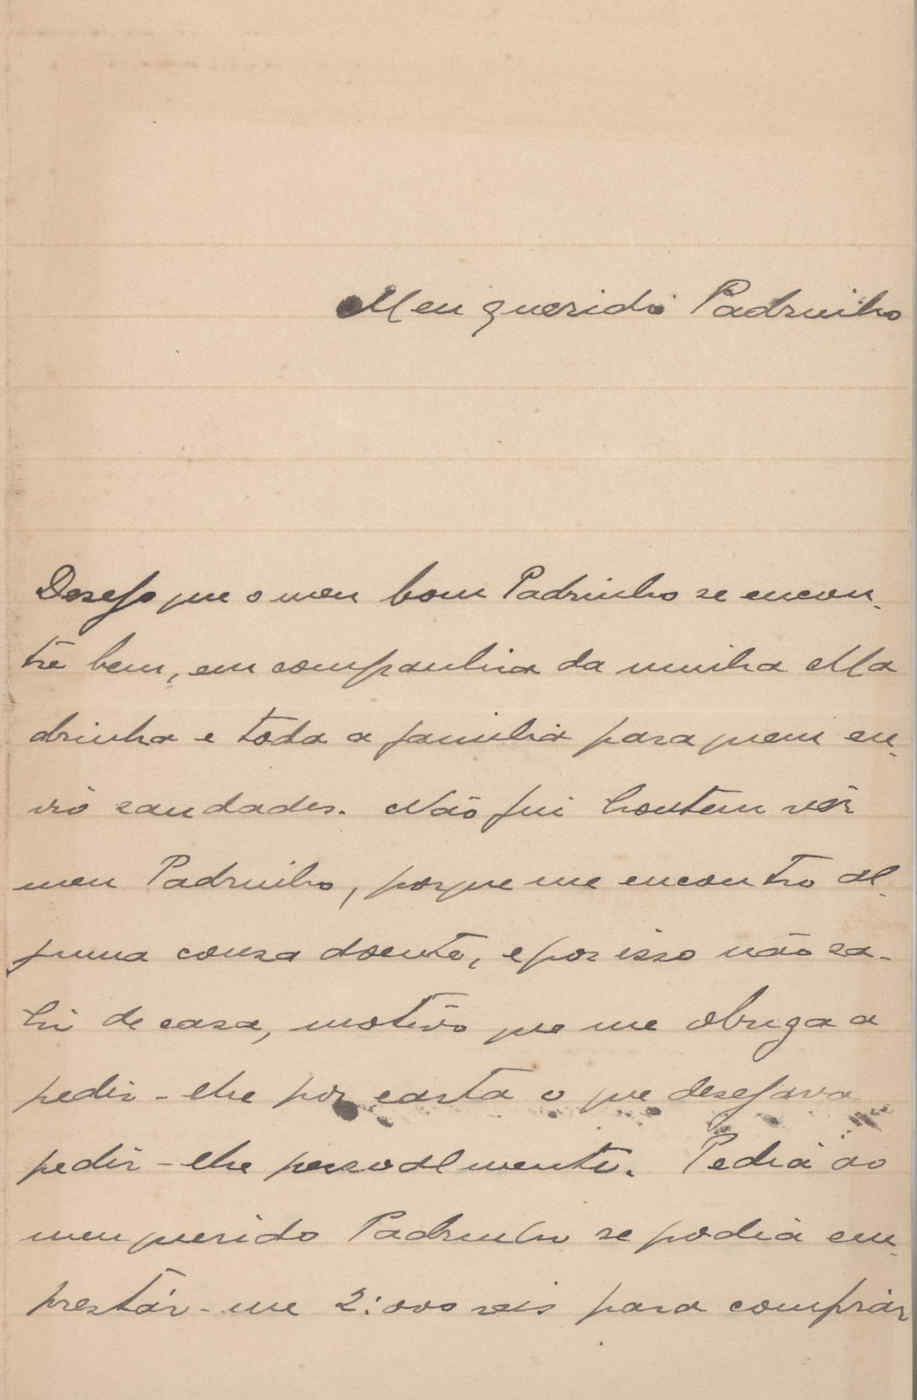 Meu querido Padrinho
Desejo que o meu bom Padrinho se encon-
tre bem, em companhia da minha Ma
drinha e toda a familia para quem en-
vio saudades. Não fui hontem vêr
meu Padrinho, porque me encontro al-
guma couza doente, e por isso não sa-
hi de casa, motivo que me obriga a
pedir-lhe por carta o que desejava
pedir-lhe pessoalmente. Pedia ao
meu querido Padrinho se podia em-
prestár-me 2:000 reis para comprár